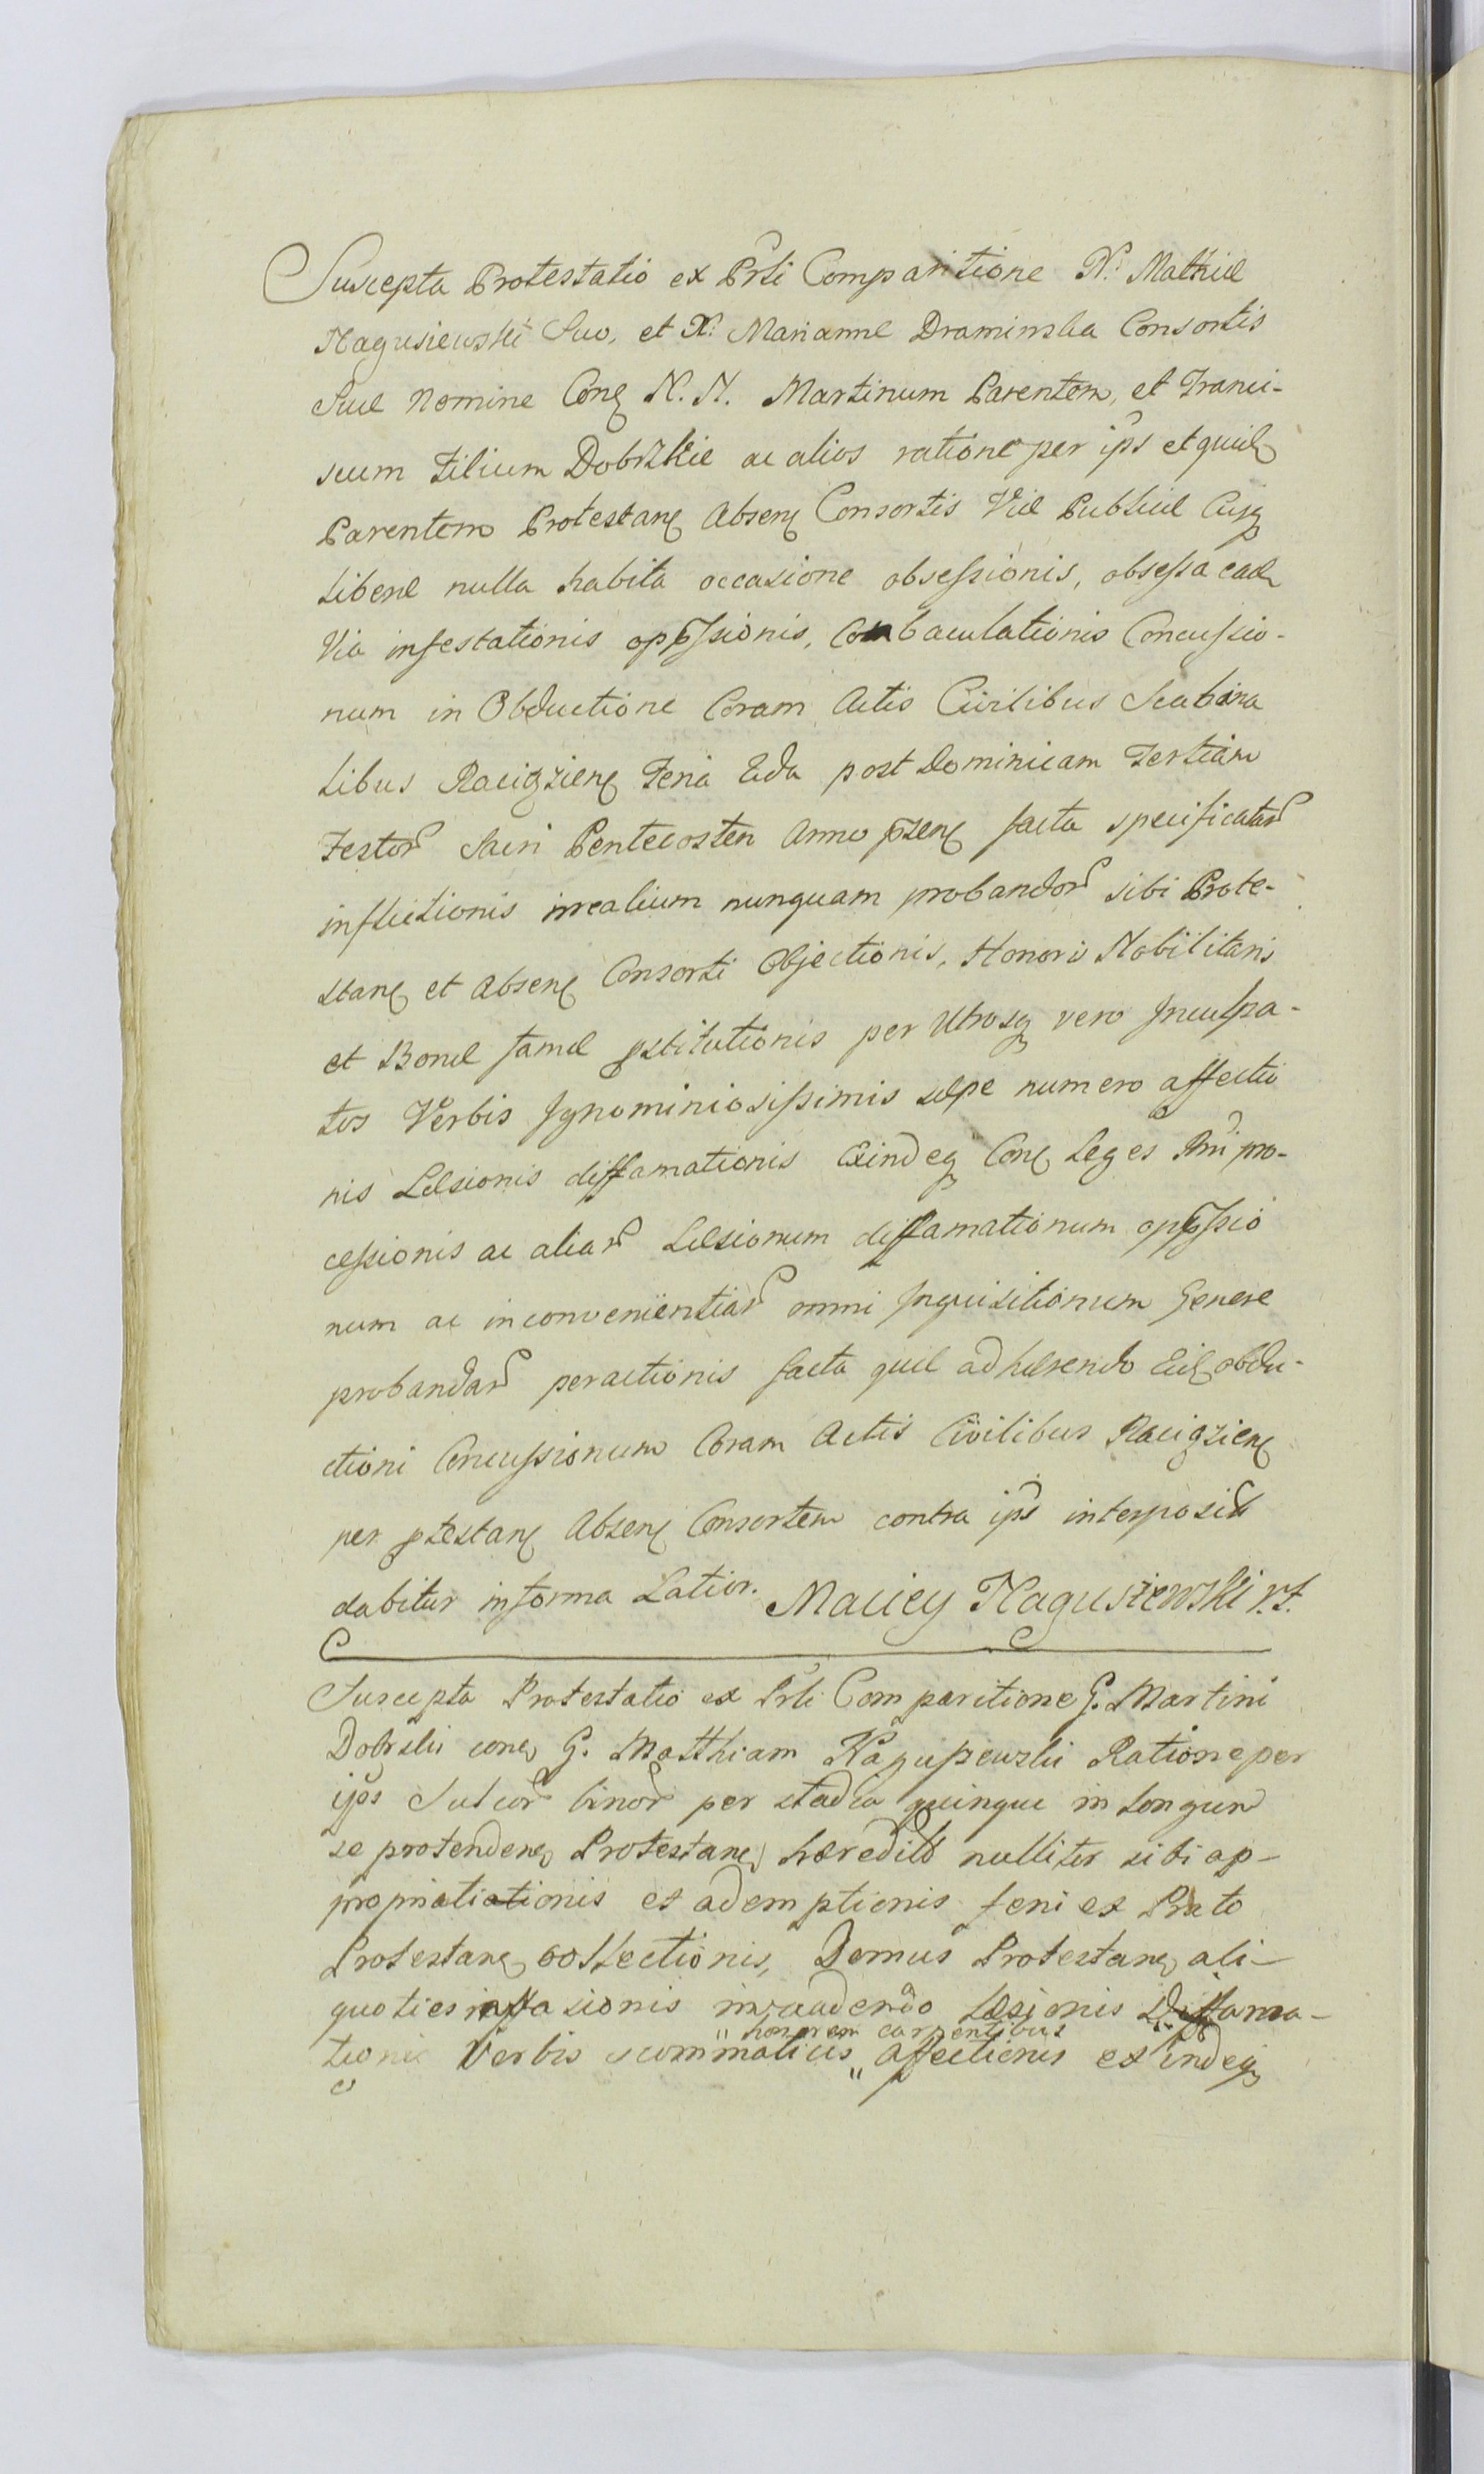 Suscepta Protestatio ex Prsti Comparitione N: Mathiæ
Nagusiewski Suo, et N: Mariannæ Draminska Consortis
Suæ Nomine Conq N. N. Martinum Parentem, et Franci-
scum Filium Dobrzkie ac alios ratione per ips et quidq
Parentem Protestanq Absenq Consortis Viæ Publicæ Cuiq
Liberæ nulla habita occasione obsessionis, obsessa eadq
Via infestationis oppssionis, Conbaculationis Concussio-
num in Obductione Coram Actis Civilibus Scabina
libus Raciązienq Feria 2da post Dominicam Tertiam
Festor Sacri Pentecosten Anno pszenq facta specificatar
inflictionis irrealium nunquam probandor sibi Prote-
stanq et Absenq Consorti Objectionis, Honoris Nobilitaris
et Bonæ famæ pstitutionis per Utrosq vero Inculpa-
tos Verbis Ignominiosissimis sæpe numero affectio
nis Læsionis diffamationis Exindeq Conq Leges Rni pro-
cessionis ac aliar Læsionum diffamationum oppssio
num ac inconvenientiar omni Inquisitionum Genere
probandar peractionis facta quæ adhærendo Eidq obdu-
ctioni Concussionum Coram Actis Civilibus Raciązienq
per ptestanq Absenq Consortem contra ips interposita
dabitur in forma Latior. Maciey Nagusiewski r.s.
Suscepta Protestatio ex Prsti Comparitione G. Martini
Dobrski conq G. Matthiam Nagussewski Ratione per
ips Sulcor binor per stadia quinque in Longum
se protendenq Protestanq hæredit nulliter sibi ap-
propriatiationis et ademptionis feni ex Prato
Protestanq collectionis, Domus Protestanq ali-
quoties invasionis invadendo Læsionis Diffama-
honorem carpentibus
tionis Verbis scommaticis „ affectionis exindeq